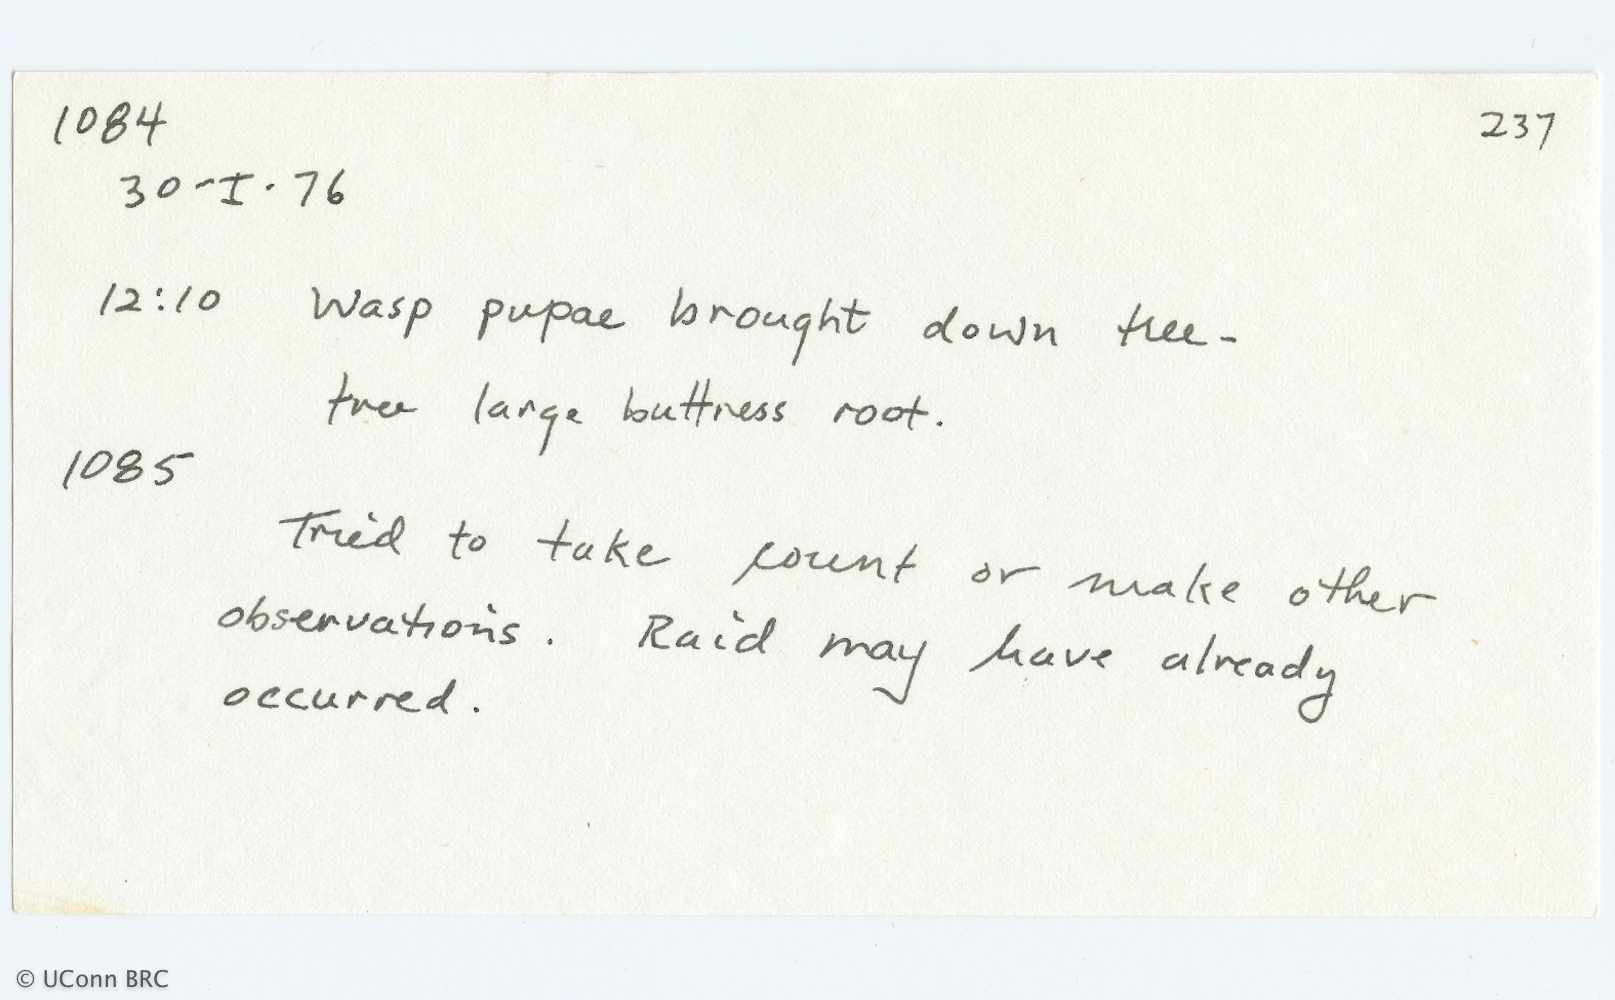 1084
237
30-I·76
12:10 Wasp pupae brought down tree-
tree large buttress root.
1085
Tried to take count or make other
observations. Raid may have already
occurred.
© UConn BRC